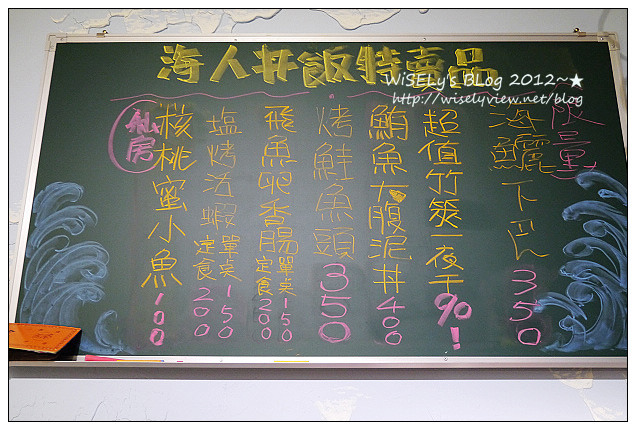 海人丼飯特賣品
WiSELy's BLog 2012~★
http://wiselyview.net/blog
限量
海鱺下 350
超值竹筴一夜干 %!
鮪魚大腹泥丼 400
烤鮭魚頭 350
飛魚卵香腸 單点 150
定食 200
塩烤活蝦 單点 150
定食 200
私房
核桃蜜小魚 100